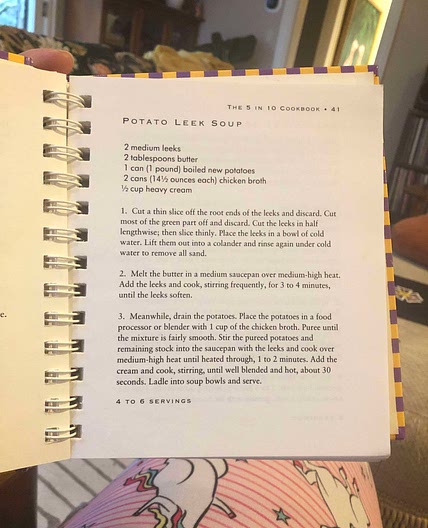 The 5 in 10 Cookbook • 41
Potato Leek Soup
2 medium leeks
2 tablespoons butter
1 can (1 pound) boiled new potatoes
2 cans (14½ ounces each) chicken broth
½ cup heavy cream
1. Cut a thin slice off the root ends of the leeks and discard. Cut
most of the green part off and discard. Cut the leeks in half
lengthwise; then slice thinly. Place the leeks in a bowl of cold
water. Lift them out into a colander and rinse again under cold
water to remove all sand.
2. Melt the butter in a medium saucepan over medium-high heat.
Add the leeks and cook, stirring frequently, for 3 to 4 minutes,
until the leeks soften.
3. Meanwhile, drain the potatoes. Place the potatoes in a food
processor or blender with 1 cup of the chicken broth. Puree until
the mixture is fairly smooth. Stir the pureed potatoes and
remaining stock into the saucepan with the leeks and cook over
medium-high heat until heated through, 1 to 2 minutes. Add the
cream and cook, stirring, until well blended and hot, about 30
seconds. Ladle into soup bowls and serve.
4 to 6 servings